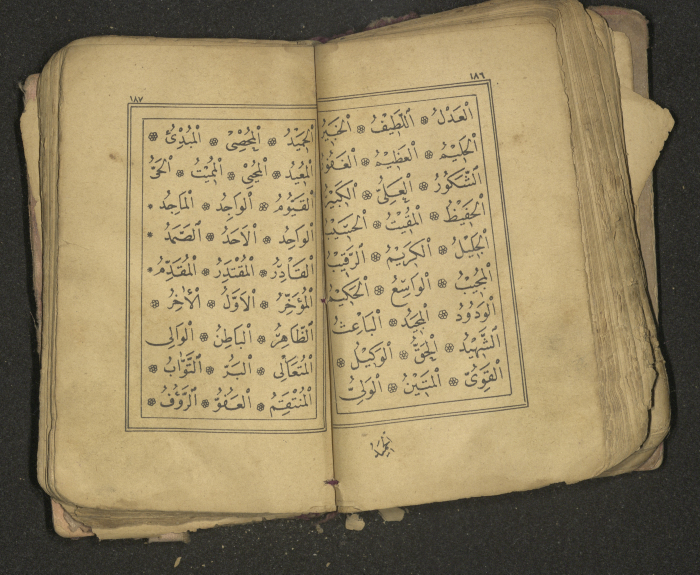 ١٨٦
الْعَدْلُ ۞ اَللَّطِيفُ ۞ الْخَبِيرُ
الْحَلِيمُ ۞ الْعَظِيمُ ۞ الْغَفُورُ
الشَّكُورُ ۞ الْعَلِىُّ ۞ الْكَبِيرُ
الْحَفِيظُ ۞ الْمُقِيتُ ۞ الْحَسِيبُ
الْجَلِيلُ ۞ الْكَرِيمُ ۞ الرَّقِيبُ
الْمُجِيبُ ۞ الْوَاسِعُ ۞ الْحَكِيمُ
الْوَدُودُ ۞ الْمَجِيدُ ۞ الْبَاعِثُ
الشَّهِيدُ ۞ الْحَقُّ ۞ الْوَكِيلُ ۞
الْقَوِىُّ ۞ الْمَتِينُ ۞ الْوَلِىُّ
الْحَمِيدُ
١٨٧
الْحَمِيدُ ۞ الْمُحْصِى ۞ الْمُبْدِئُ ۞
الْمُعِيدُ ۞ الْمُحْيِى ۞ الْمُمِيتُ ۞ الْحَىُّ
الْقَيُّومُ ۞ الْوَاجِدُ ۞ الْمَاجِدُ ۞
الْوَاحِدُ ۞ الْاَحَدُ ۞ الصَّمَدُ ۞
الْقَادِرُ ۞ الْمُقْتَدِرُ ۞ الْمُقَدِّمُ ۞
الْمُؤَخِّرُ ۞ الْاَوَّلُ ۞ الْاٰخِرُ ۞
الظَّاهِرُ ۞ الْبَاطِنُ ۞ الْوَالِى
الْمُتَعَالِى ۞ الْبَرُّ ۞ التَّوَّابُ ۞
الْمُنْتَقِمُ ۞ الْعَفُوُّ ۞ الرَّؤُفُ ۞